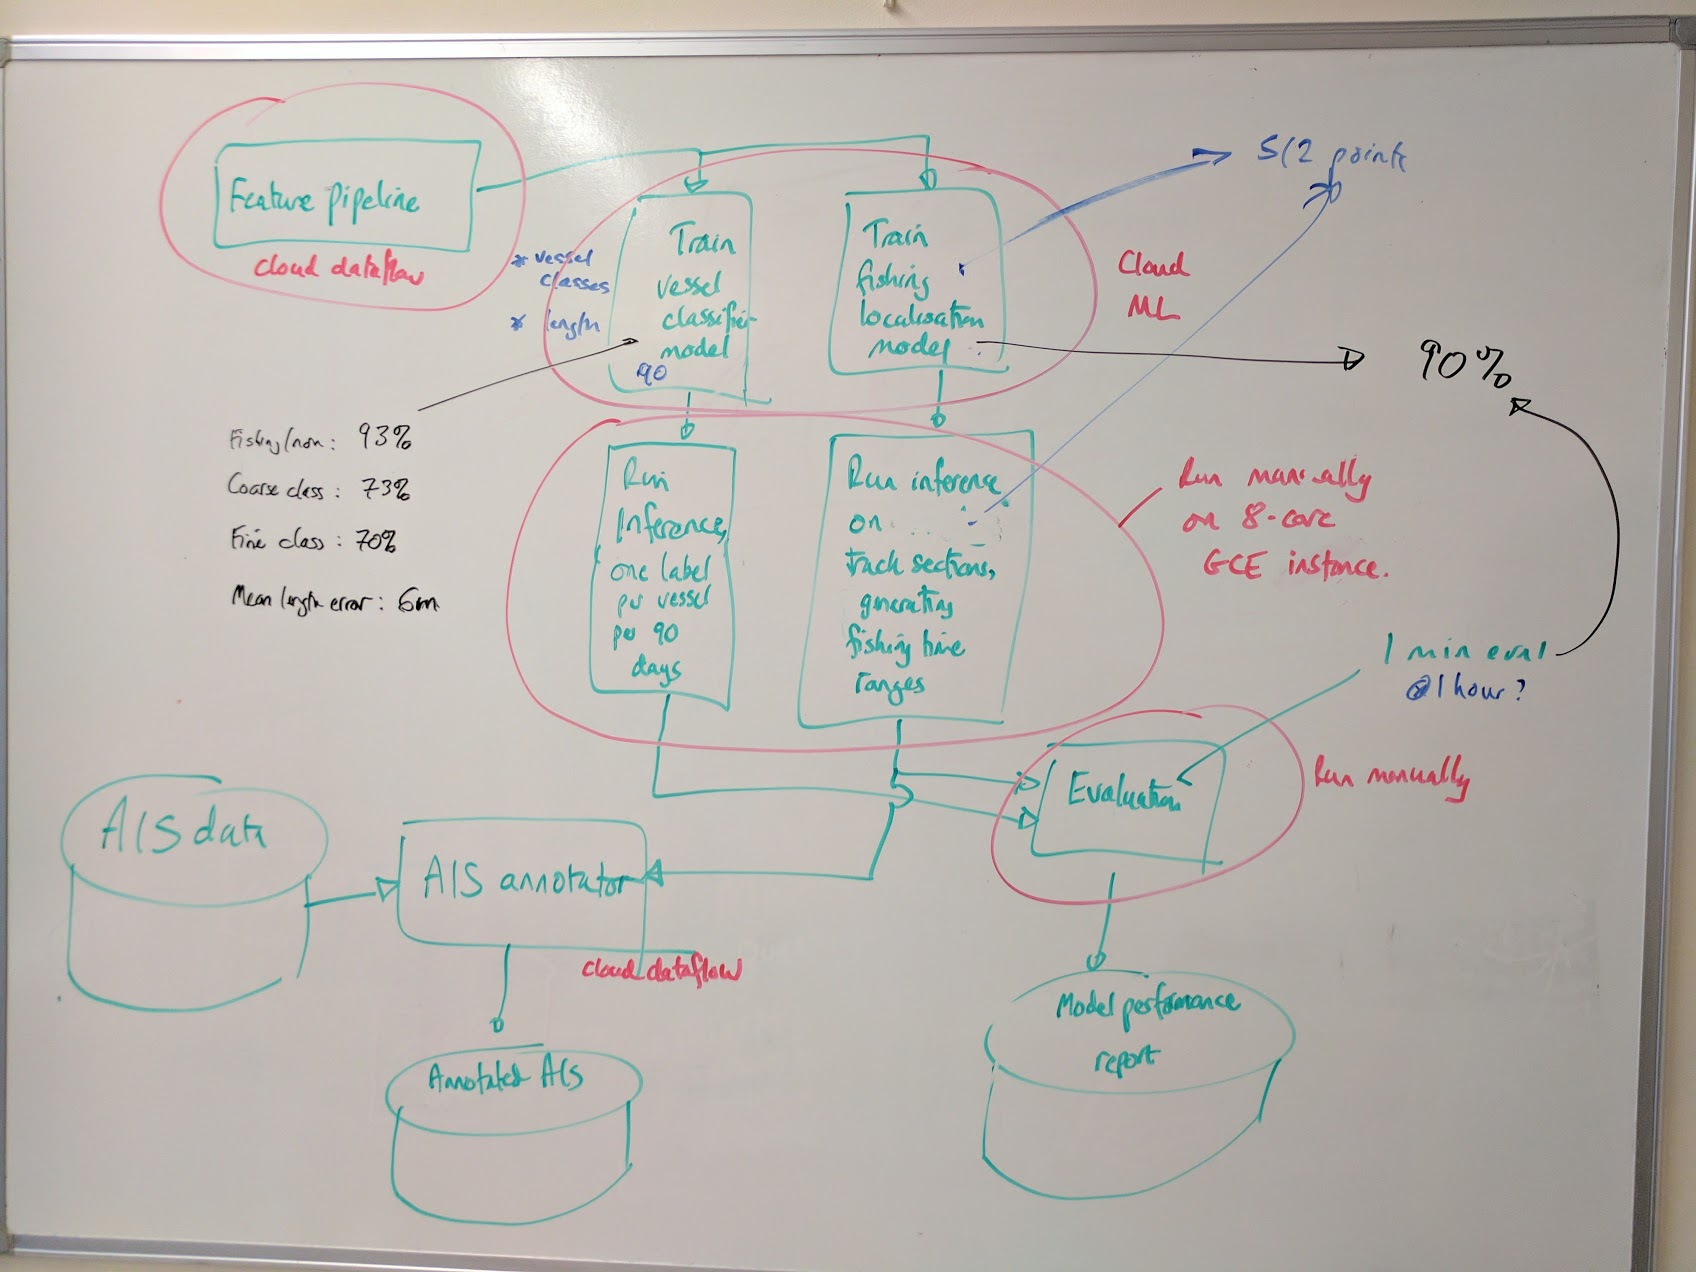 Feature pipeline
Cloud dataflow
* vessel
classes
* length
Train
vessel
classifier
model
90
Train
fishing
localisation
model
Cloud
ML
512 points
90%
Fishing/non: 93%
Coarse class: 73%
Fine class: 70%
Mean length error: 6m
Run
Inference,
one label
per vessel
per 90
days
Run inference
on
track sections,
generating
fishing time
ranges
Run manually
on 8-core
GCE instance.
1 min eval
@1 hour?
Evaluation
Run manually
AIS data
AIS annotator
cloud dataflow
Annotated AIS
Model performance
report